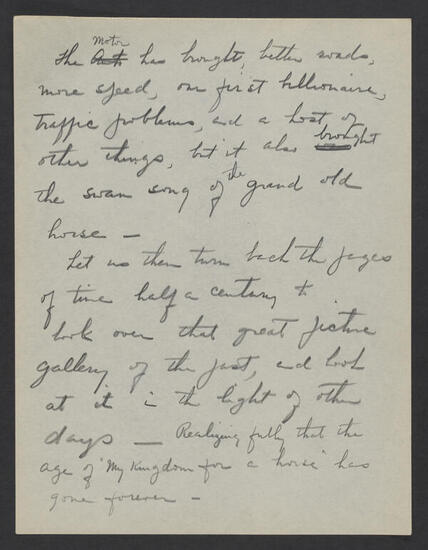 Motor
The Auto has brought, better roads,
more speed, our first billionaire,
traffic problems, and a host of
other things, but it also brought
the swan song of the grand old
horse —
Let us then turn back the pages
of time half a century &
look over that great picture
gallery of the past, and look
at it in the light of other
days — Realizing fully that the
age of "My Kingdom for a horse" has
gone forever —